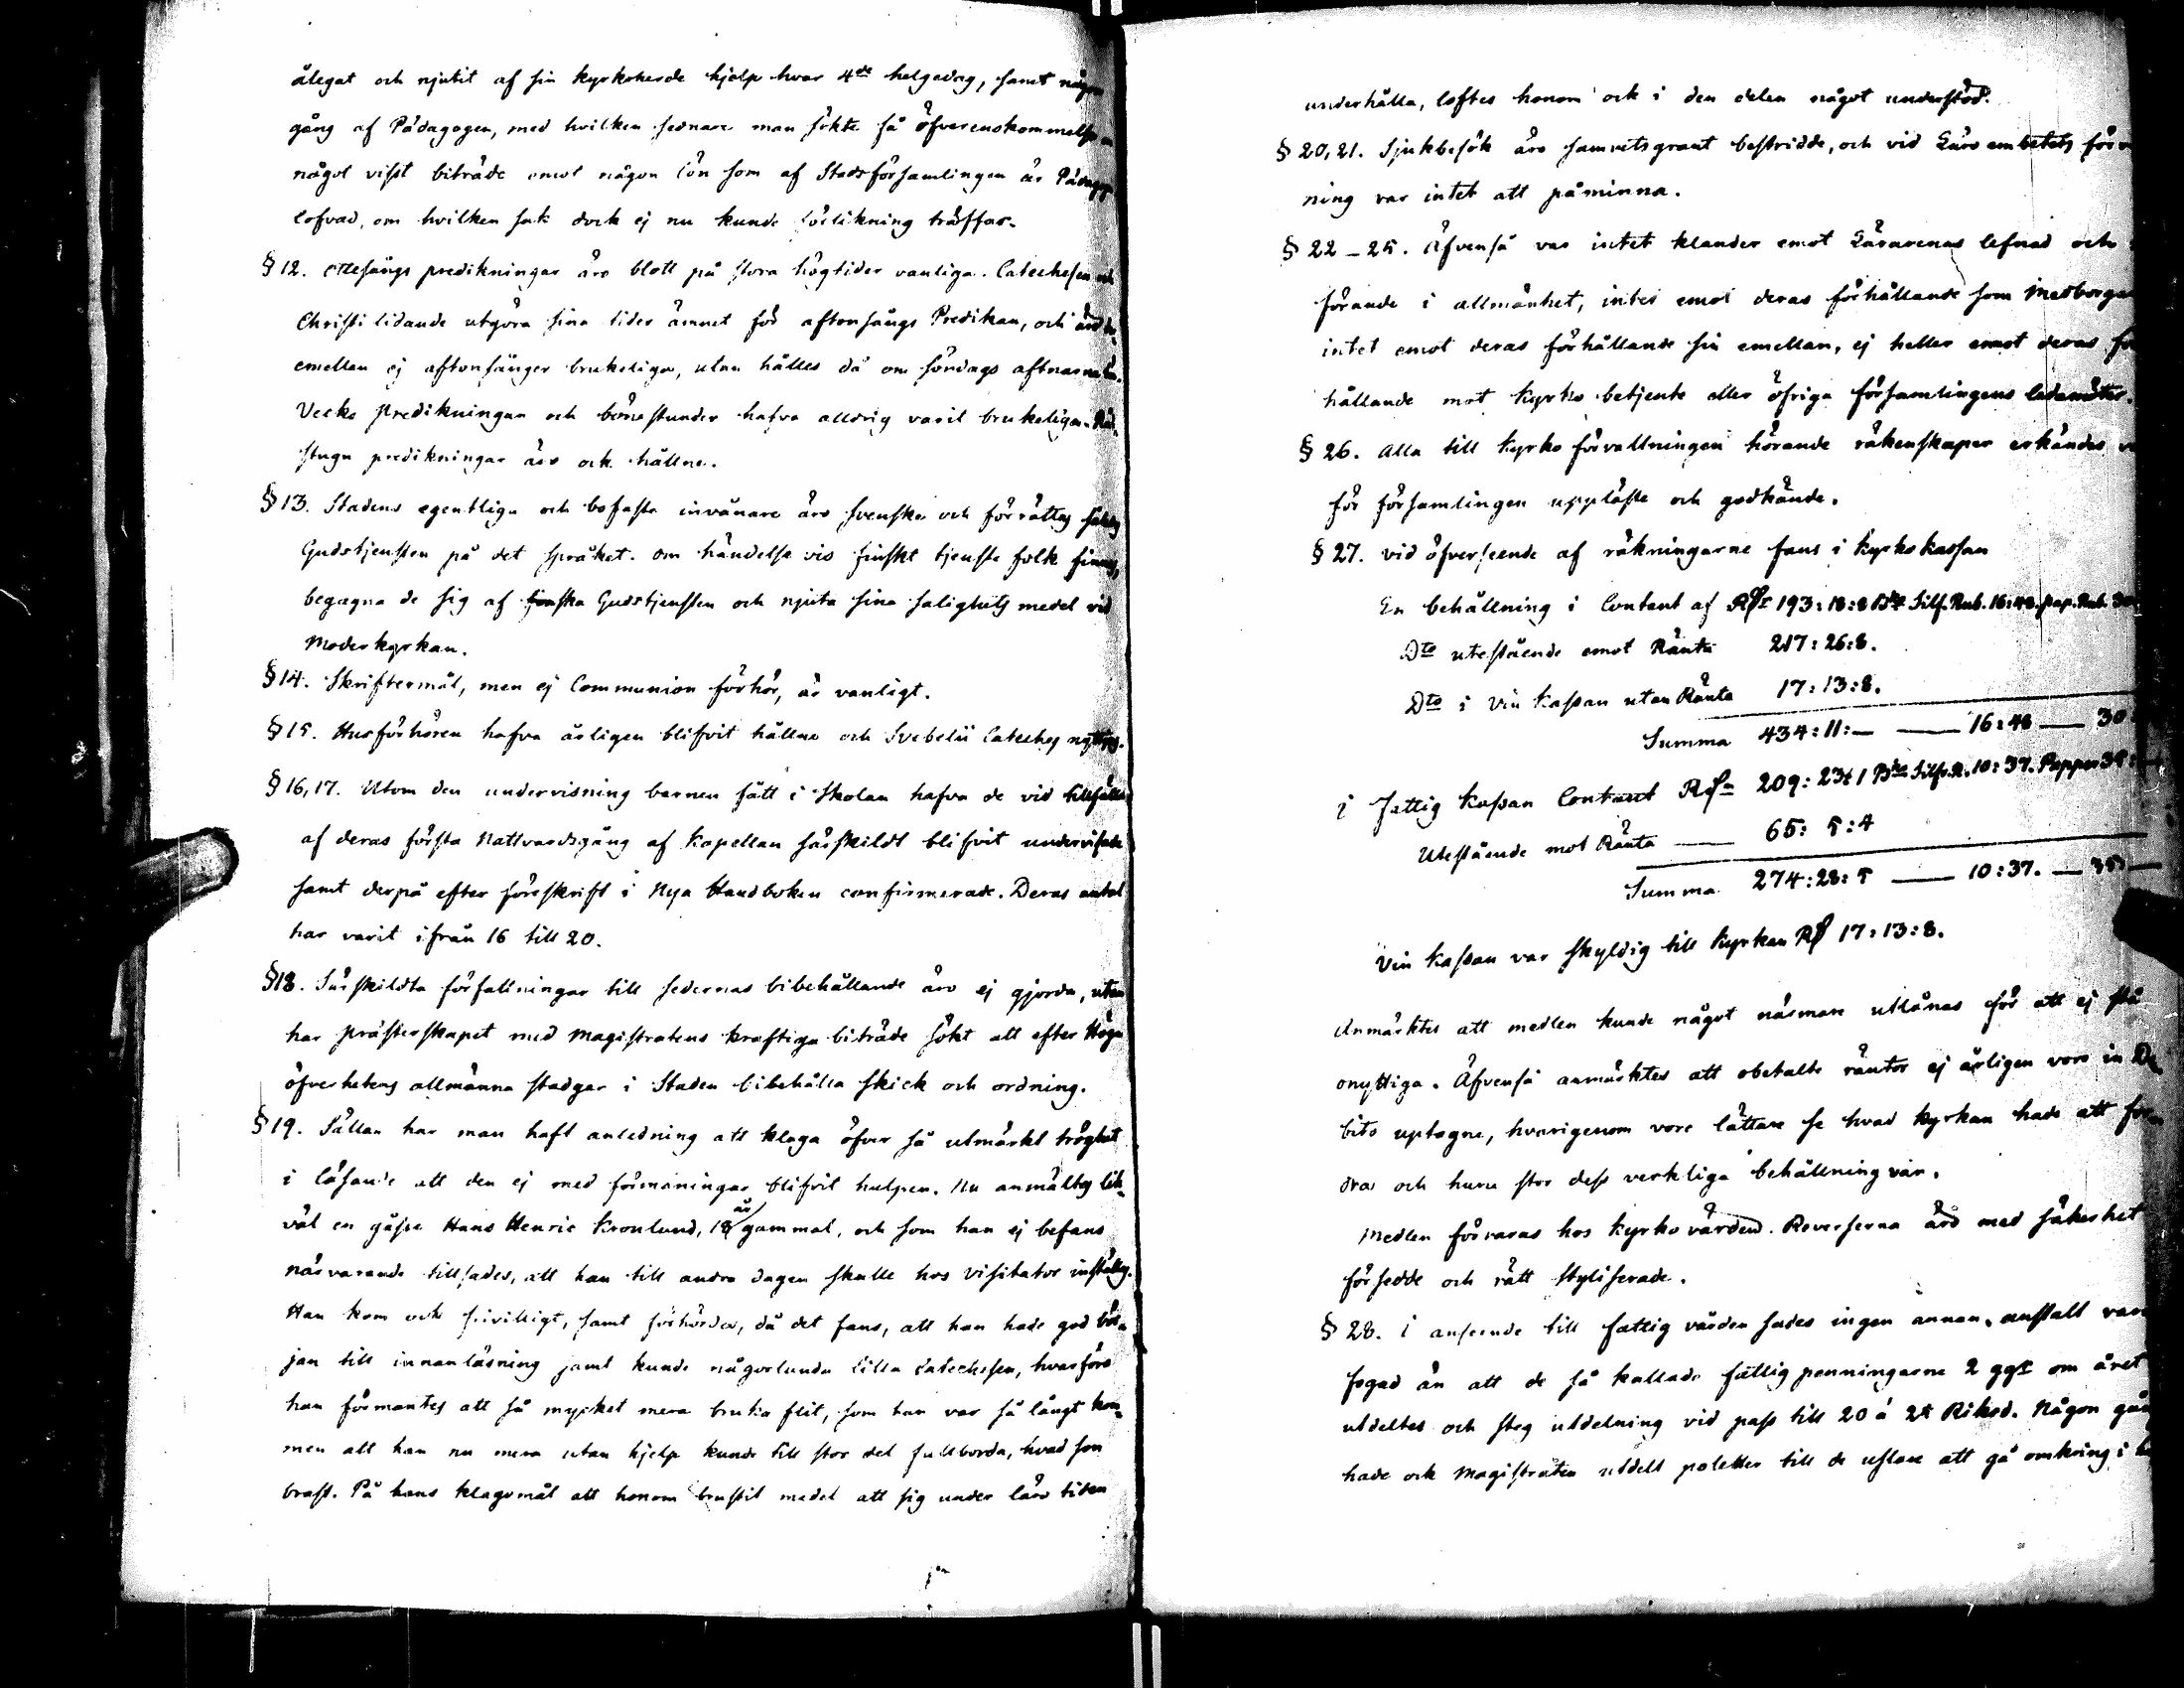 ålegat och njutit af sin kyrkoherde hjelp hvar 4de helgedag, samt någon
gång af Pädagogen, med hvilken sednare man sökte få öfverenskommelse om
något visst biträde emot någon lön som af Stadsförsamlingen är Pädagogen
lofvad, om hvilken sak dock ej nu kunde förlikning träffas.
§ 12. Ottesångs predikningar äro blott på stora högtider vanliga. Catechesen och
Christi lidande utgöra sina tider ämnet för aftonsångs Predikan, och äro der
emellan ej aftonsånger brukeliga, utan hålles då om söndags aftnarna
Vecko predikningar och bönestunder hafva alldrig varit brukeliga. Råd
stugu predikningar äro ock hållne.
§ 13. Stadens egentliga och bofasta invånare äro svenska och förrättas således
Gudstjensten på det språket. om händelse vis finskt tjenste folk finnes,
begagna de sig af finska Gudstjensten och njuta sina salighets medel vid
Moderkyrkan.
§ 14. Skriftermål, men ej Communion förhör, är vanligt.
§ 15. Husförhören hafva årligen blifvit hållne och Svebelii Cateches nyttjas.
§ 16, 17. Utom den undervisning barnen fått i Skolan hafva de vid tillfälle
af deras första Nattvardsgång af Kapellan särskildt blifvit underviste
samt derpå efter föreskrift i Nya Handboken confirmerade. Deras antal
har varit ifrån 16 till 20.
§ 18. Särskildta författningar till sedernas bibehållande äro ej gjorda, utan
har prästerskapet med Magistratens kraftiga biträde sökt att efter Höga
öfverhetens allmänna stadgar i Staden bibehålla skick och ordning.
§ 19. Sällan har man haft anledning att klaga öfver så utmärkt tröghet
i läsande att den ej med förmaningar blifvit hulpen. Nu anmältes lik
väl en gåsse Hans Henric Kronlund, 18 år gammal, och som han ej befans
närvarande tillsades, att han till andra dagen skulle hos Visitator inställas.
Han kom ock frivilligt, samt förhördes, då det fans, att han hade god bör
jan till innanläsning samt kunde någorlunda lilla Catechesen, hvarföre
han förmantes att så mycket mera bruka flit, som han var så långt kom
men att han nu mera utan hjelp kunde till stor del fullborda, hvad som
brast. På hans klagomål att honom brustit medel att sig under läro tiden
underhålla, loftes honom ock i den delen något understöd.
§ 20, 21. Sjukbesök äro samvetsgrant bestridde, och vid Läro embetets förvalt
ning var intet att påminna.
§ 22-25. Äfvenså var intet klander emot Lärarenas lefnad och
förande i allmänhet, intet emot deras förhållande som Medborgare
intet emot deras förhållande sin emellan, ej heller emot deras för
hållande mot kyrko betjente eller öfriga församlingens ledamöter.
§ 26. Alla till Kyrko förvaltningen hörande räkenskaper erkändes
för församlingen uppläste och godkände.
§ 27. vid öfverseende af räkningarne fans i Kyrko kassan
En behållning i Contant af Rdr 193:18:8 Bko Silf. Rub. 16:48. pap. Rub. 30
Dto utestående emot Ränta 217:26:8.
Dto i Vin Kassan utan Ränta 17:13:8.
Summa 434:11:— — 16:48 — 30
i Fattig Kassan Contant Rdr 209:23:1 Bko Silfv. R. 10:37. Papper 39:
Utestående mot Ränta — 65: 5:4
Summa 274:28:5 — 10:37. — 39:
Vin Kassan var skyldig till Kyrkan Rd 17:13:8.
Anmärktes att medlen kunde något närmare utlånas för att ej stå
onyttiga. Äfvenså anmärktes att obetalte räntor ej årligen voro in De
bito uptagne, hvarigenom vore lättare se hvad kyrkan hade att for
dra och huru stor dess verkliga behållning var.
Medlen förvaras hos Kyrko värden. Reverserna äro med säkerhet
försedde och rätt styliserade.
§ 28. i anseende till fattig vården sades ingen annan anstalt vara
fogad än att de så kallade fattig penningarne 2 ggr om året
utdeltes och steg utdelning vid pass till 20 à 24 Riksd. Någon gång
hade ock Magistraten utdelt poletter till de uslare att gå omkring i